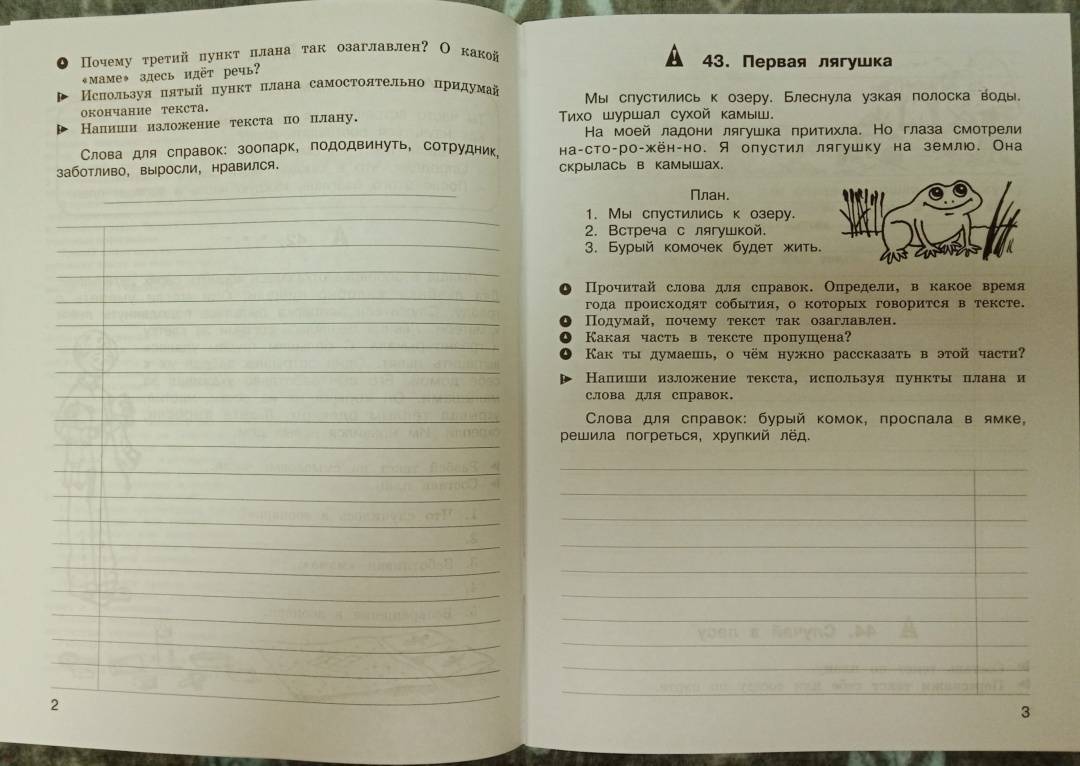 Почему третий пункт плана так озаглавлен? О какой
«маме» здесь идёт речь?
Используя пятый пункт плана самостоятельно придумай
окончание текста.
Напиши изложение текста по плану.
Слова для справок: зоопарк, пододвинуть, сотрудник,
заботливо, выросли, нравился.
2
43. Первая лягушка
Мы спустились к озеру. Блеснула узкая полоска воды.
Тихо шуршал сухой камыш.
На моей ладони лягушка притихла. Но глаза смотрели
на-сто-ро-жён-но. Я опустил лягушку на землю. Она
скрылась в камышах.
План.
1. Мы спустились к озеру.
2. Встреча с лягушкой.
3. Бурый комочек будет жить.
Прочитай слова для справок. Определи, в какое время
года происходят события, о которых говорится в тексте.
Подумай, почему текст так озаглавлен.
Какая часть в тексте пропущена?
Как ты думаешь, о чём нужно рассказать в этой части?
Напиши изложение текста, используя пункты плана и
слова для справок.
Слова для справок: бурый комок, проспала в ямке,
решила погреться, хрупкий лёд.
44. Случай в лесу
3